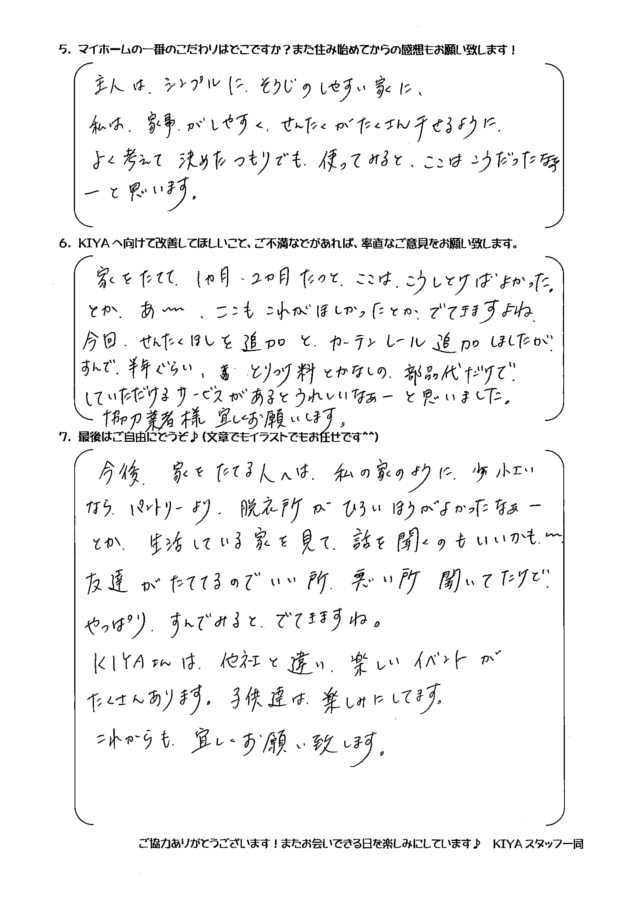 5. マイホームの一番のこだわりはどこですか？また住み始めてからの感想もお願い致します！
主人は、シンプルに、そうじのしやすい家に、
私は、家事がしやすく、せんたくがたくさん干せるように、
よく考えて決めたつもりでも、使ってみると、ここはこうだったなぁ
ーと思います。
6. KIYAへ向けて改善してほしいこと、ご不満などがあれば、率直なご意見をお願い致します。
家をたてて、1ヵ月・2ヵ月たつと、ここは、こうしとけばよかった。
とか、あ〜〜、ここもこれがほしかったとか、でてきますよね。
今回、せんたくほしを追加と、カーテンレール追加しましたが、
すんで、半年ぐらい、とりつけ料とかなしの、部品代だけで
していただけるサービスがあるとうれしいなぁーと思いました。
協力業者様 宜しくお願いします。
7. 最後はご自由にどうぞ♪(文章でもイラストでもお任せです^^)
今後、家をたてる人へは、私の家のように、少小さい
なら、パントリーより、脱衣所がひろいほうがよかったなぁー
とか、生活している家を見て、話を聞くのもいいかも〜
友達がたててるのでいい所、悪い所 聞いてたけど、
やっぱり、すんでみると、でてきますね。
KIYAさんは、他社と違い、楽しいイベントが
たくさんあります。子供達は、楽しみにしてます。
これからも、宜しくお願い致します。
ご協力ありがとうございます！またお会いできる日を楽しみにしています♪ KIYAスタッフ一同